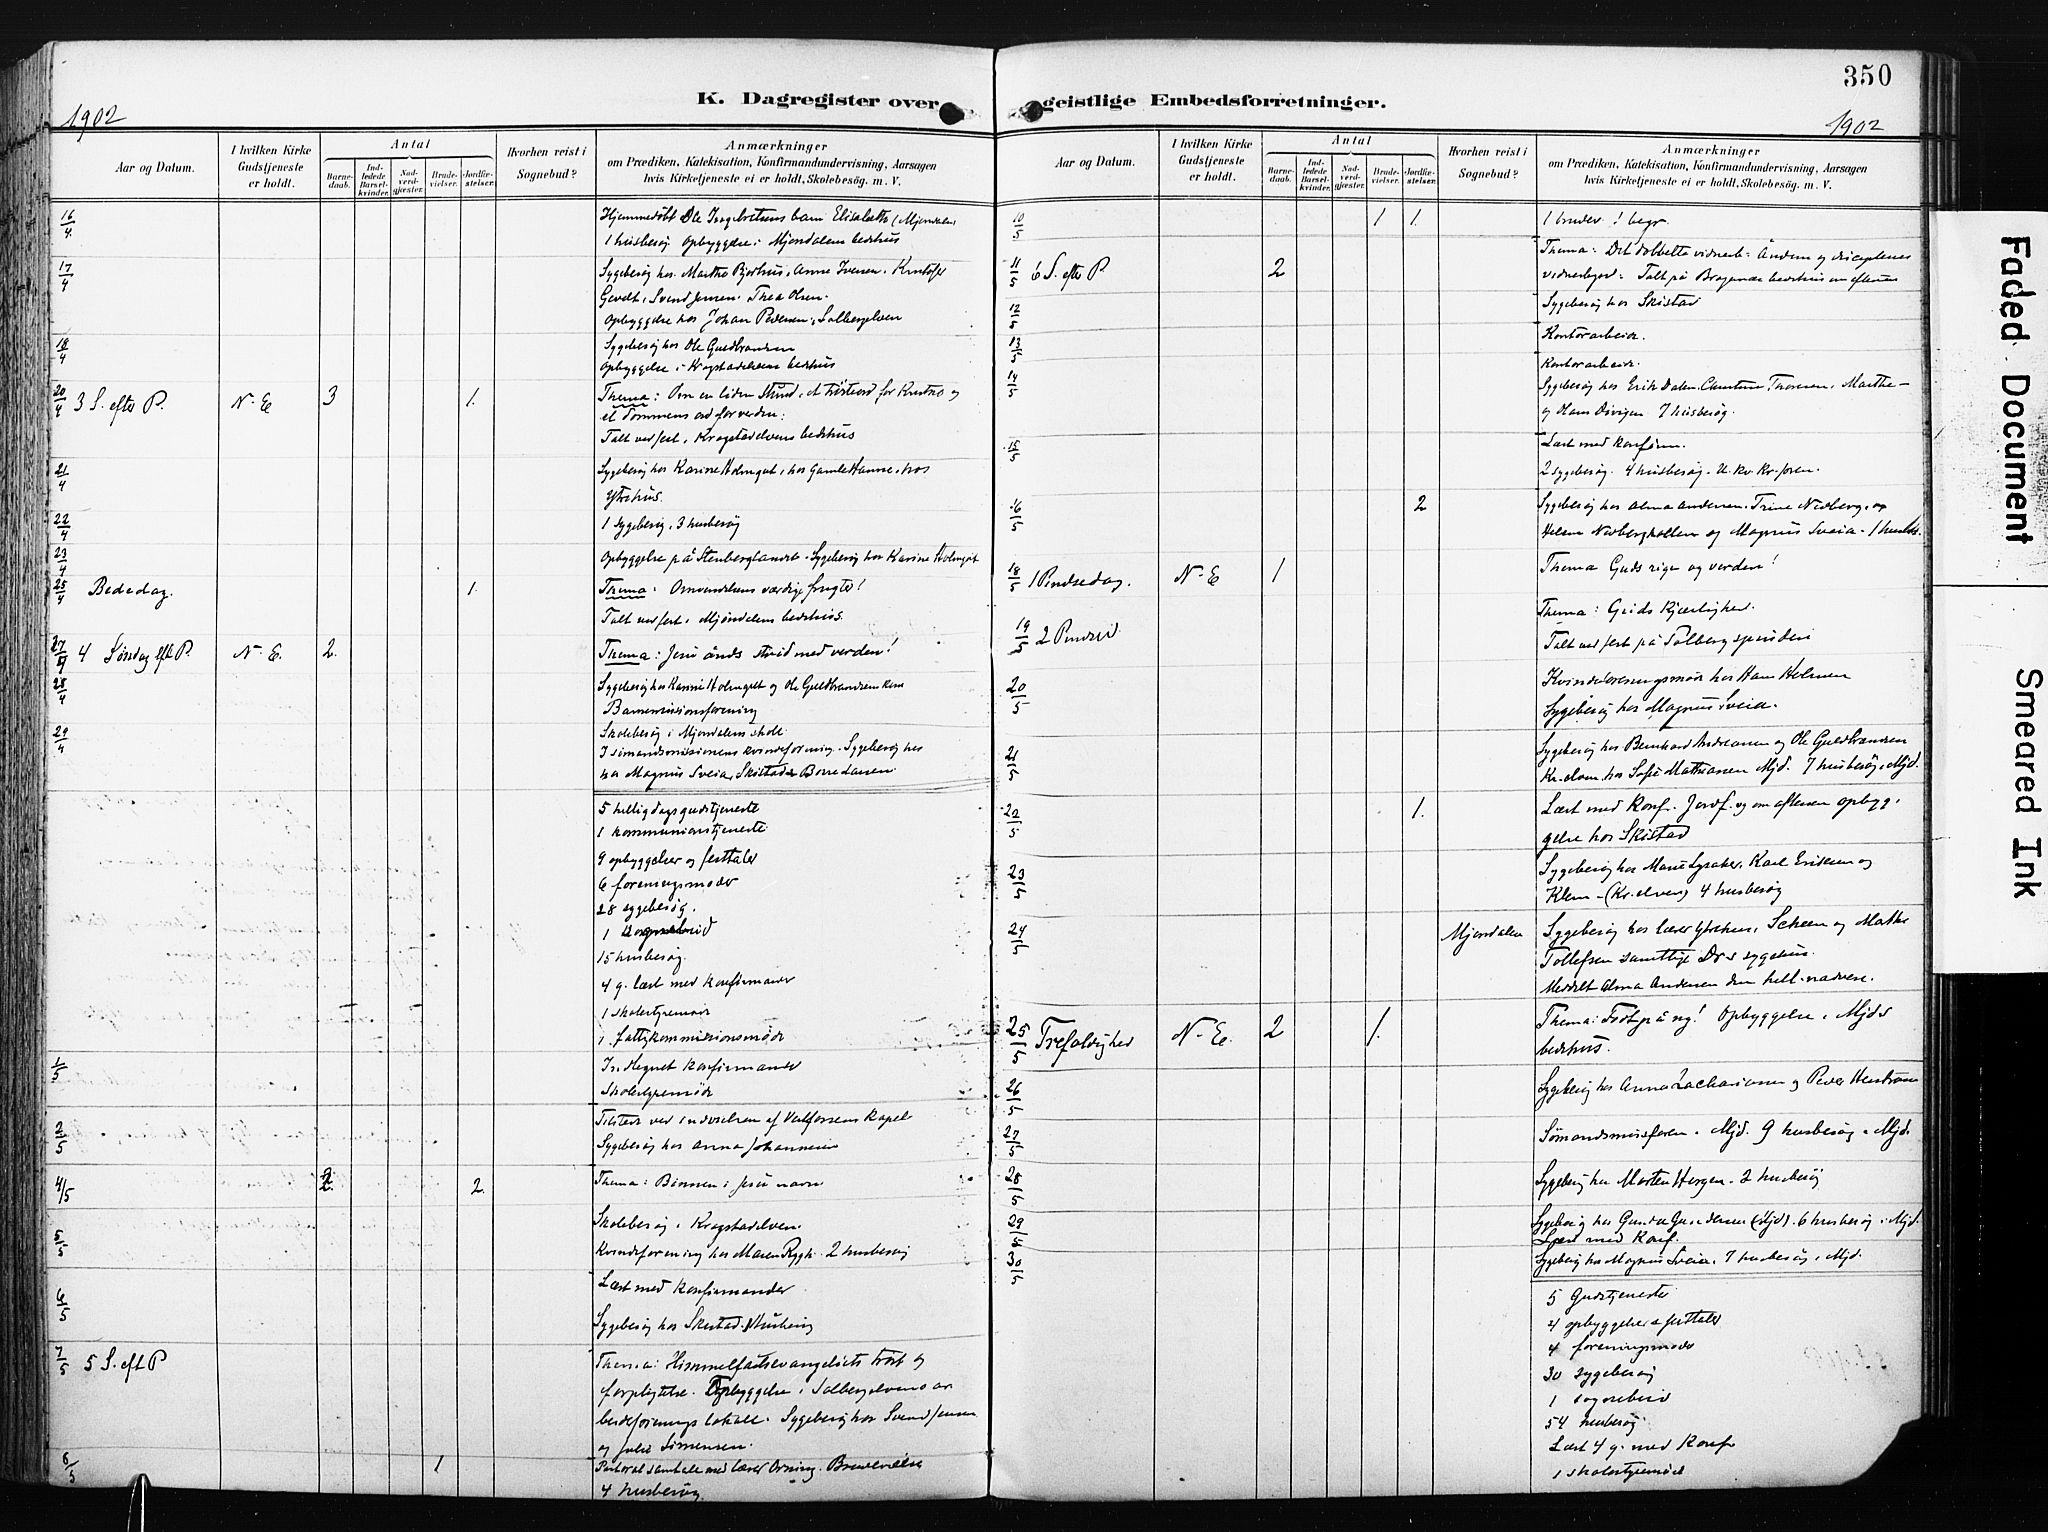 350
K. Dagregister over geistlige Embedsforretninger.
1902
1902
Aar og Datum.
I hvilken Kirke Gudstjeneste er holdt.
Antal
Barnedaab.
Indledede Barselkvinder.
Nadverdgjester.
Brudevielser.
Jordfæstelser.
Hvorhen reist i Sognebud?
Anmærkninger
om Prædiken, Katekisation, Konfirmandundervisning, Aarsagen
hvis Kirketjeneste ei er holdt, Skolebesög. m. V.
16/4 Hjemmedöbt Ole Ingebretsens barn Elisabeth (Mjöndalen)
1 husbesög Opbyggelse i Mjöndalens bedehus
17/4 Sygebesög hos Marthe Bjorhus, Anne Iversen,
Svend Jensen. Thea Olsen.
Opbyggelse hos Johan Pedersen, Solbergelven
18/4 Sygebesög hos Ole Guldbrandsen
Opbyggelse i Krogstadelvens bedehus
20/4 3 S. efter P. N. E 3 1. Thema: Om en liden stund, et tröstord for Kristne og
et dommens ord for verden.
Talt ved fest i Krogstadelvens bedehus
21/4 Sygebesög hos Karine Holmgot, hos Gamle Hanne, hos
Ytrehus.
22/4 1 Sygebesög, 3 husbesög
23/4 Opbyggelse på Stenberglandet. Sygebesög hos Karine Holmgot
25/4 Bededag. 1. Thema: Omvendelsens værdige frugter!
Talt ved fest i Mjöndalens bedehus.
27/4 4 Söndag eft P. N. E. 2. Thema: Jesu ånds strid med verden!
28/4 Sygebesög hos Karine Holmgot og Ole Guldbrandsen
Barnemissionsforening
29/4 Skolebesög i Mjöndalens skole
I sömandsmissionens kvindeforening. Sygebesög hos
hos Magnus Sveia, Skistad
5 helligdagsgudstjeneste
1 kommunionstjeneste
9 opbyggelser og festtaler
6 foreningsmöder
28 sygebesög.
1 sognebud
15 husbesög.
4 g. læst med konfirmander
1 skolestyremöde
1 fattigkommissionsmöde
1/5 Indtegnet konfirmander
Skolestyremöde
2/5 Tilstede ved indvielsen af Vestfossens kapel
Sygebesög hos Anna Johannesen
4/5 2. 2. Thema: Bönnen i Jesu navn
5/5 Skolebesög i Krogstadelven.
Kvindeforening hos Maren Rygh. 2 husbesög
6/5 Læst med konfirmander
Sygebesög hos Skistad. 1 Husbesög
7/5 5 S. eft P Thema: Himmelfartsevangeliets tröst og
forpligtelse. Opbyggelse i Solbergelvens ar
beiderforenings lokale. Sygebesög hos Svend Jensen
og Julie Simensen.
6/5 1 Pastoral samtale med lærer Orning. Brudevielse
4 husbesög.
Aar og Datum.
I hvilken Kirke Gudstjeneste er holdt.
Antal
Barnedaab.
Indledede Barselkvinder.
Nadverdgjester.
Brudevielser.
Jordfæstelser.
Hvorhen reist i Sognebud?
Anmærkninger
om Prædiken, Katekisation, Konfirmandundervisning, Aarsagen
hvis Kirketjeneste ei er holdt, Skolebesög. m. V.
10/5 1 1. 1 brudev. 1 begr.
11/5 6 S. efter P 2 Thema: Det dobbelte vidnesb. Ånden og disciplenes
vidnesbyrd. Talt på Bragernæs bedehus om aftenen
12/5 Sygebesög hos Skistad
13/5 Kontorarbeide.
Kontorarbeide.
14/5 Sygebesög hos Erik Dalen, Thoresen, Marthe
og Hans Divigen 7 husbesög.
15/5 Læst med konfirm.
2 sygebesög. 4 husbesög. U. kv. Kr. foren.
16/5 2 Sygebesög hos Alma Andersen, Trine Nedberg, og
Helene Nedbergkollen og Magnus Sveia. 1 husbes.
18/5 1 Pindsedag. N. E 1 Thema Guds rige og verden!
19/5 2 Pindsed. Thema: Guds Kjærlighed.
Talt ved fest på Solberg spinderi
20/5 Kvindeforeningsmöde hos Hans Holmen
Sygebesög hos Magnus Sveia.
21/5 Sygebesög hos Bernhard Andersen og Ole Guldbrandsen
Kr. elven. hos Sofie Mathiesen Mjd. 7 husbesög i Mjd.
22/5 1. Læst med konf. Jordf. og om aftenen opbyg-
gelse hos Skistad
23/5 Sygebesög hos Marie Lysaker, Karl Eriksen og
Klem - (Kr. elven) 4 husbesög
24/5 Mjöndalen Sygebesög hos lærer Ytrehus, Scheen og Mathe
Tollefsen samtlige Dr.s sygehus.
Meddelt Alma Andersen den hell. nadvere.
25/5 Trefoldighed N. E. 2 1. Thema: Født på ny! Opbyggelse i Mjd.s
bedehus.
26/5 Sygebesög hos Anna Zachariasen og Peder
27/5 Sömandsmisforen. Mjd. 9 husbesög i Mjd.
28/5 Sygebesög hos Morten Horgen. 2 husbesög
29/5 Sygebesög hos Gunda Gundersen (Mjd). 6 husbesög i Mjd.
Læst med Konf.
30/5 Sygebesög hos Magnus Sveia, 7 husbesög i Mjd.
5 Gudstjenester
4 opbyggelser & festtaler
4 foreningsmöder
30 sygebesög
1 sognebud
54 husbesög
Læst 4 g. med Konf
1 skolestyremöde
Faded Document
Smeared Ink